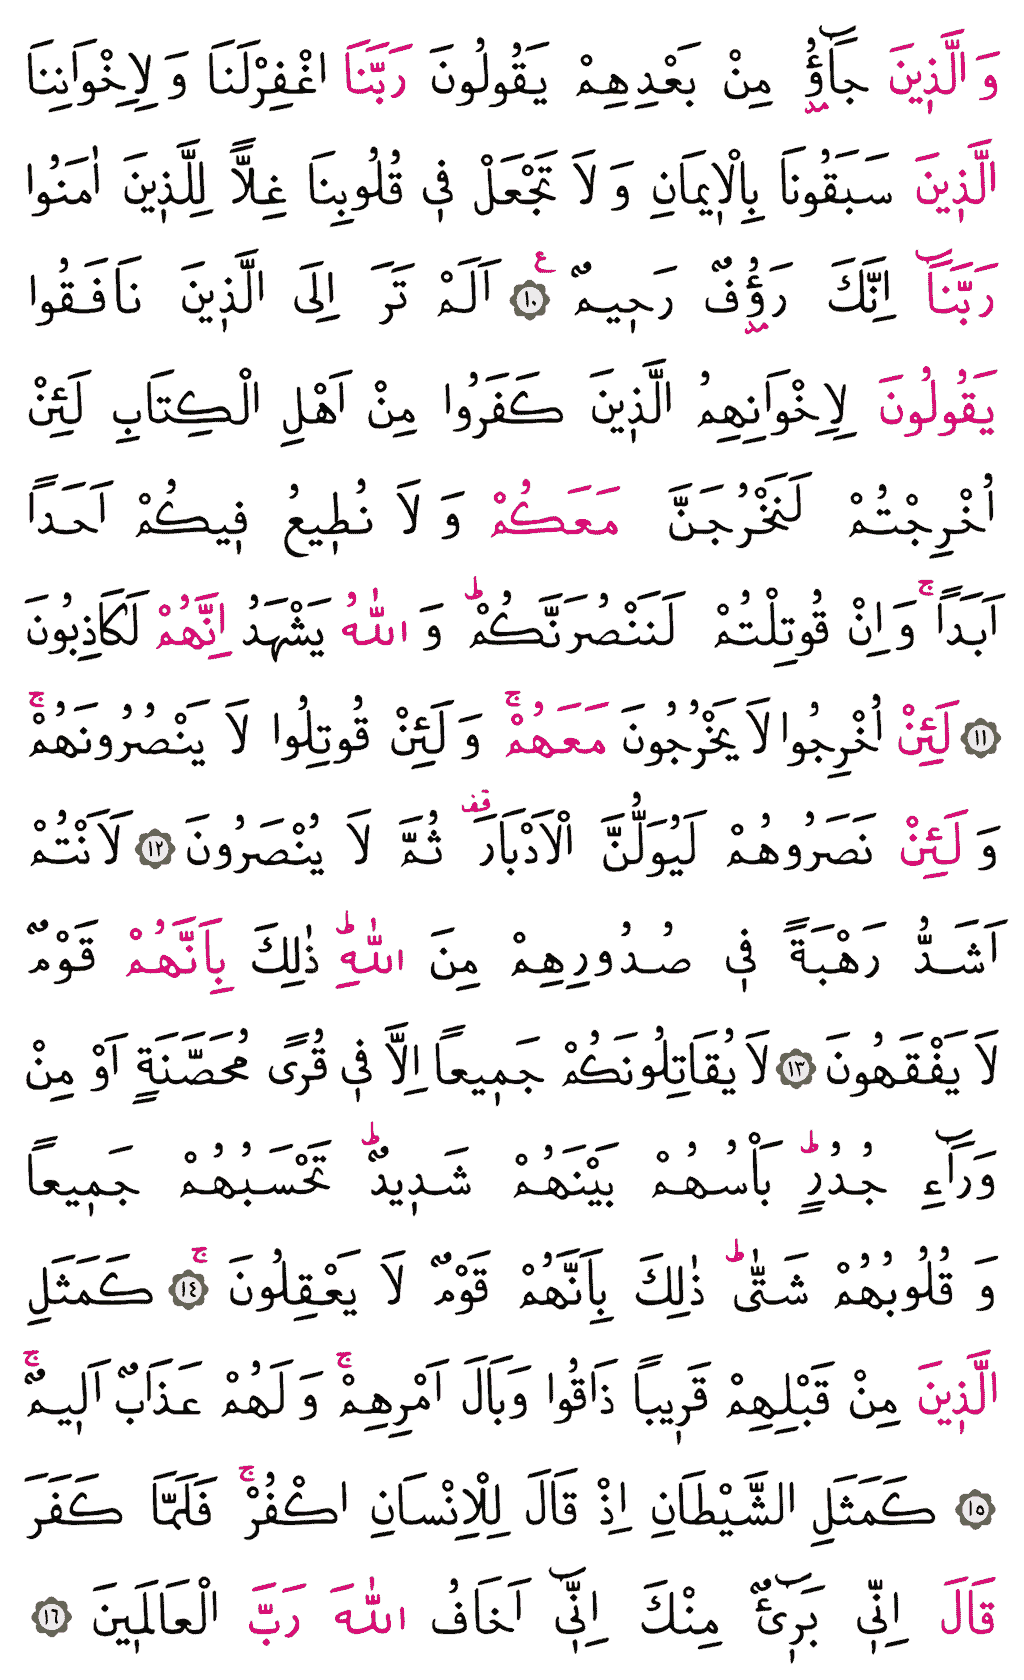 وَالَّذ۪ينَ جَٓاؤُ۫ مِنْ بَعْدِهِمْ يَقُولُونَ رَبَّنَا اغْفِرْلَنَا وَلِاِخْوَانِنَا
الَّذ۪ينَ سَبَقُونَا بِالْا۪يمَانِ وَلَا تَجْعَلْ ف۪ي قُلُوبِنَا غِلًّا لِلَّذ۪ينَ اٰمَنُوا
رَبَّنَٓا اِنَّكَ رَؤُ۫فٌ رَح۪يمٌ ﴿١٠﴾ ع اَلَمْ تَرَ اِلَى الَّذ۪ينَ نَافَقُوا
يَقُولُونَ لِاِخْوَانِهِمُ الَّذ۪ينَ كَفَرُوا مِنْ اَهْلِ الْكِتَابِ لَئِنْ
اُخْرِجْتُمْ لَنَخْرُجَنَّ مَعَكُمْ وَلَا نُط۪يعُ ف۪يكُمْ اَحَداً
اَبَداًۚ وَاِنْ قُوتِلْتُمْ لَنَنْصُرَنَّكُمْۜ وَاللّٰهُ يَشْهَدُ اِنَّهُمْ لَكَاذِبُونَ
﴿١١﴾ لَئِنْ اُخْرِجُوا لَا يَخْرُجُونَ مَعَهُمْۚ وَلَئِنْ قُوتِلُوا لَا يَنْصُرُونَهُمْۚ
وَلَئِنْ نَصَرُوهُمْ لَيُوَلُّنَّ الْاَدْبَارَ قف ثُمَّ لَا يُنْصَرُونَ ﴿١٢﴾ لَاَنْتُمْ
اَشَدُّ رَهْبَةً ف۪ي صُدُورِهِمْ مِنَ اللّٰهِۜ ذٰلِكَ بِاَنَّهُمْ قَوْمٌ
لَا يَفْقَهُونَ ﴿١٣﴾ لَا يُقَاتِلُونَكُمْ جَم۪يعاً اِلَّا ف۪ي قُرًى مُحَصَّنَةٍ اَوْ مِنْ
وَرَٓاءِ جُدُرٍۜ بَأْسُهُمْ بَيْنَهُمْ شَد۪يدٌۜ تَحْسَبُهُمْ جَم۪يعاً
وَقُلُوبُهُمْ شَتّٰىۜ ذٰلِكَ بِاَنَّهُمْ قَوْمٌ لَا يَعْقِلُونَۚ ﴿١٤﴾ كَمَثَلِ
الَّذ۪ينَ مِنْ قَبْلِهِمْ قَر۪يباً ذَاقُوا وَبَالَ اَمْرِهِمْۚ وَلَهُمْ عَذَابٌ اَل۪يمٌۚ
﴿١٥﴾ كَمَثَلِ الشَّيْطَانِ اِذْ قَالَ لِلْاِنْسَانِ اكْفُرْۚ فَلَمَّا كَفَرَ
قَالَ اِنّ۪ي بَر۪ٓيءٌ مِنْكَ اِنّ۪ٓي اَخَافُ اللّٰهَ رَبَّ الْعَالَم۪ينَ ﴿١٦﴾